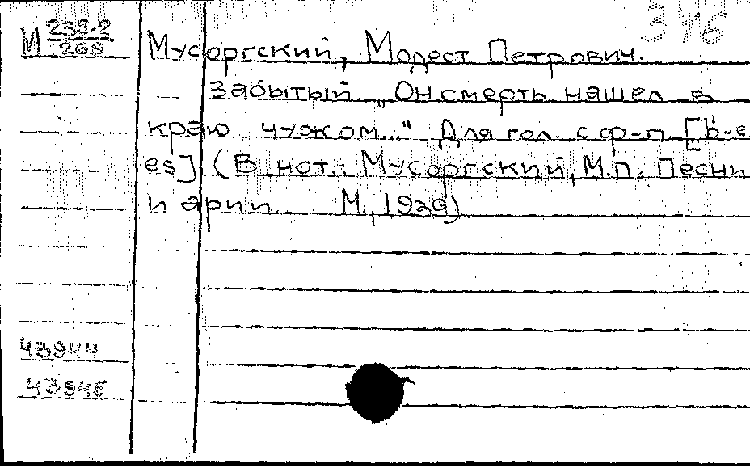 346
И 239-2
268
Мусоргский, Модест Петрович.
Забытый „Он смерть нашел в
краю чужом..." Для гол. с ф-п. [b-e
es] (В нот.: Мусоргский, М.П. Песни
и арии. М., 1939)
43944
43945